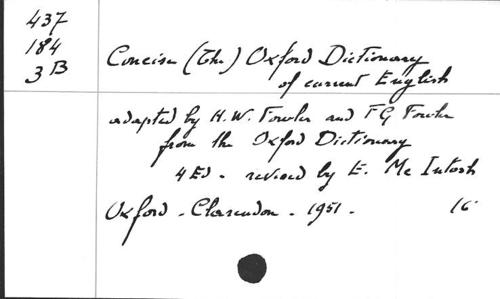 437
184
3B
Concise (The) Oxford Dictionary
of current English
adapted by H.W. Fowler and F G Fowler
from the Oxford Dictionary
4 Ed. - revised by E. Mc Intosh
Oxford - Clarendon - 1951. 16